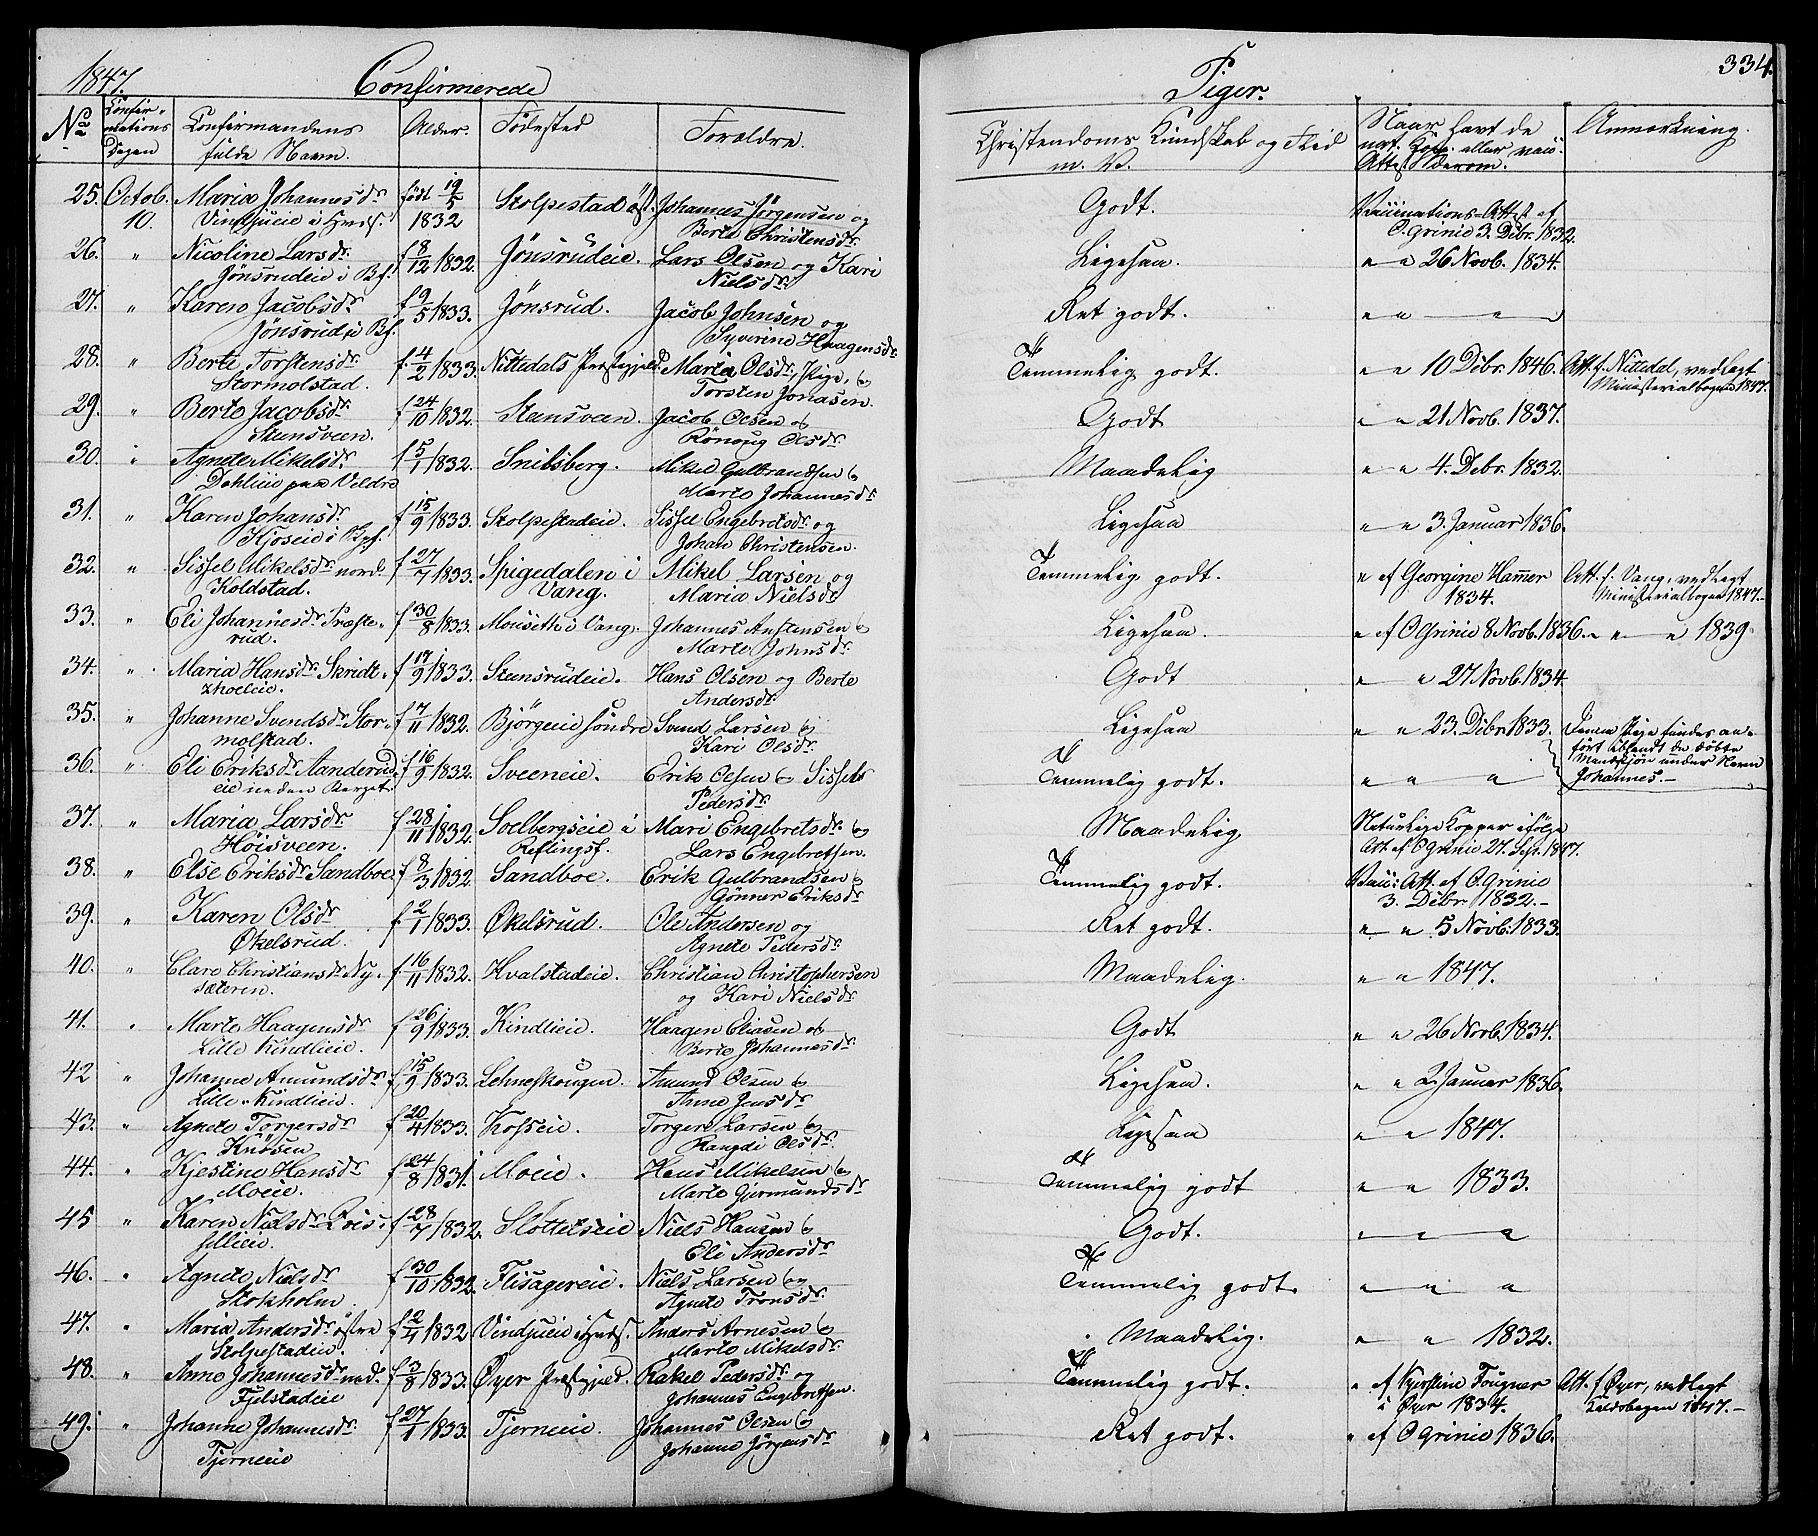 1847. Confirmerede
No Confirmations Dagen Confirmandens fulde Navn. Alder. Fødested Forældre.
25. Octob. 10. Maria Johannesdr født 19/5 1832 Stolpestad øst. Johannes Jørgensen og
Vindjueie i Furds. Berte Christensdr
26. " Nicoline Larsdr f 8/12 1832. Jønsrudeie. Lars Olsen og Kari
Jønsrudeie i Bf. Nielsdr
27. " Karen Jacobsdr f 9/5 1833. Jønsrud. Jacob Johnsen og
Jønsrud i Bf. Syverine Haagensdr
28. " Berte Torstensdr f 4/2 1833. Nittedals Præstegjeld Maria Olsdr, Pige, og
Stormolstad. Torsten Jonasen.
29. " Berte Jacobsdr f 24/10 1832. Stensveen. Jacob Olsen og
Stensveen. Rønnug Olsdr
30. " Agnete Mikelsdr f 5/1 1832. Snibsberg. Mikel Gulbrandsen og
Dehlieie paa Veldre Marte Johannesdr
31. " Karen Johansdr f 15/9 1833. Stolpestadeie. Sissel Engebretsdr og
Kjoseie i Johan Christensen.
32. " Sissel Mikelsdr nord. f 27/7 1833. Spigedalen i Mikel Larsen og
Koldstad. Vang. Maria Nielsdr
33. " Eli Johannesdr Præste- f 30/8 1833. Mouseth i Vang. Johannes Anstensen og
rud. Marte Johnsdr
34. " Maria Hansdr Skridt- f 17/9 1833. Stensrudeie. Hans Olsen og Berte
sholeie. Andersdr
35. " Johanne Svendsdr Stor- f 7/11 1832. Bjørgeeie søndre Svend Larsen og
molstad. Kari Olsdr
36. " Eli Eriksdr Aanderud f 16/9 1832. Sveeneie. Erik Olsen og Sissel
eie neden Berget. Pedersdr
37. " Maria Larsdr f 28/11 1832. Soelbergseie i Mari Engebretsdr og
Høisveen. Reslingsf. Lars Engebretsen.
38. " Else Eriksdr Sandboe f 8/3 1832. Sandboe. Erik Gulbrandsen og
Gønner Eriksdr
39. " Karen Olsdr f 2/1 1833. Økelsrud. Ole Andersen og
Økelsrud. Agnete Pedersdr
40. " Clare Christiansdr Ny- f 16/11 1832. Kvalstadeie. Christian Christophersen
sæteren. og Kari Nielsdr
41. " Marte Haagensdr f 26/9 1833. Kindlieie. Haagen Eliasen og
Lille Kindlieie. Berte Johannesdr
42 " Johanne Amundsdr f 15/9 1833. Lehneskougen. Amund Olsen og
Lille-Kindlieie. Anne Jensdr
43. " Agnete Torgersdr f 20/4 1833. Kosseie. Torger Larsen og
Knosen Rangdi Olsdr
44. " Kjestine Hansdr f 24/8 1831. Moeie. Hans Mikelsen og
Moeie. Marte Gjermundsdr
45 " Karen Nielsdr f 28/7 1832. Slottetseie Niels Hansen og
Eli Andersdr
46. " Agnete Nielsdr f 30/10 1832. Flisagereie. Niels Larsen og
Stokholm. Agnete Tronsdr
47. " Maria Andersdr østre f 2/4 1832 Vindjueie i Furds. Anders Arnesen og
Stolpestadeie. Marte Mikelsdr
48. " Anne Johannesdr ned. f 3/8 1833. Øyer Præstegjeld. Rakel Pedersdr og
Fjelstadeie Johannes Engebretsen.
49. " Johanne Johannesdr f 27/1 1833. Tjerneie. Johannes Olsen og
Tjerneie Johanne Jørgensdr
Piger. 334.
Christendoms Kundskab og Flid m. V. Naar havt de nat. Kop. eller vacc. Attest derom. Anmærkning.
Godt. Vaccinations-Attest af
O. Grinie 3. Debr. 1832.
Ligesaa. " " 26 Novb. 1834.
Ret godt. " " — "
Temmelig godt. " " 10 Debr. 1846. Att. f. Nittedal, vedlagt
Ministerialbogen 1847.
Godt " " 21 Novb. 1837.
Maadelig " " 4. Debr. 1832.
Ligesaa " " 3. Januar 1836.
Temmelig godt. " af Georgine Hamer Att. f. Vang, vedlagt
1834. Ministerialbogen 1847.—
Ligesaa. " af O Grinie 8 Novb. 1836. " " — " 1839
Godt " " 27 Novb. 1834.
Ligesaa " " 23. Debr 1833. Denne Pige findes an-
ført iblandt de døbte
Mandkjøn under Navn
Johannes.—
Temmelig godt. " " "
Maadelig Naturlige Kopper ifølge
Att af O Grinie 27. Sept. 1847.
Temmelig godt. Vacc: Att. af O. Grinie
3. Debr 1832.-
Ret godt. " " 5 Novb. 1833.
Maadelig. " " 1847.
Godt " " 26 Novb. 1834.
Ligesaa. " " 2. Januar 1836.
Ligesaa " " 1847.
Temmelig godt " " 1833.
Godt. " " "
Temmelig godt. " " "
Maadelig. " " 1832.
Temmelig godt. " af Kjerstine Fougner Att. f Øyer, vedlagt
i Øyer 1834. 1847.—
Ret godt. " af O Grinie 1836.